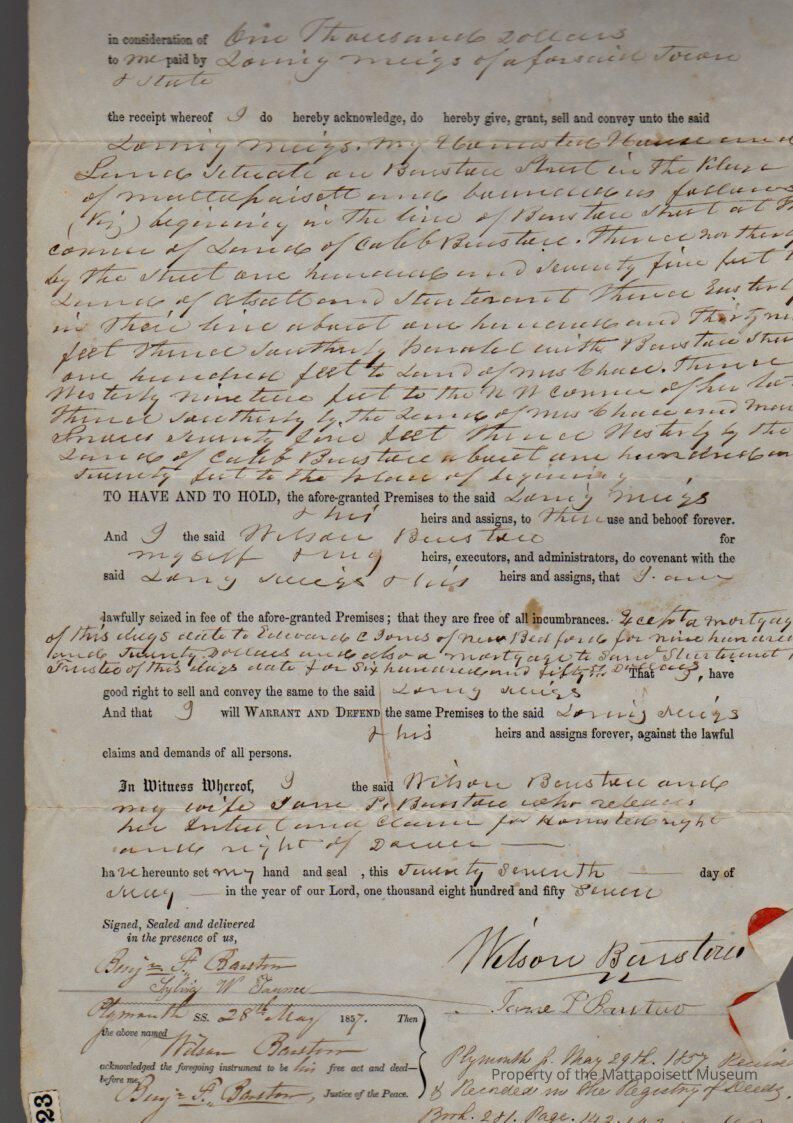 in consideration of One Thousand Dollars
to me paid by Loring Meigs of aforsaid Town
& State
the receipt whereof I do hereby acknowledge, do hereby give, grant, sell and convey unto the said
Loring Meigs. my Homsted House and
Land Situate on Barstow Street in the Village
of Mattapoisett and bounded as follows
(Viz) begining in the line of Barstow Street at
corner of Land of Caleb Barstow. Thence northerly
by the Street one hundred and seventy five feet
Land of and Sturtevant Thence Easterly
in Their line about one hundred and Thirty
feet Thence Southerly Parralel with Barstow Street
one hundred feet to Land of Mrs Chace. Thence
Westerly nineteen feet to the N W corner of her
Thence Southerly by the Land of Mrs Chace and
seventy five feet Thence Westerly by the
Land of Caleb Barstow about one hundred
Twenty feet to the place of begining
TO HAVE AND TO HOLD, the afore-granted Premises to the said Loring Meigs
& his heirs and assigns, to Their use and behoof forever.
And I the said Wilson Barstow for
myself & my heirs, executors, and administrators, do covenant with the
said Loring Meigs & his heirs and assigns, that I am
lawfully seized in fee of the afore-granted Premises; that they are free of all incumbrances. Except a mortgage
of this days date to Edward C Jones of New Bedford for nine hundred
and Twenty Dollars and also a mortgage to Saml Sturtevant
Trustee of this days date for Six hundred and fifty Dollars That I, have
good right to sell and convey the same to the said Loring Meigs
And that I will WARRANT AND DEFEND the same Premises to the said Loring Meigs
& his heirs and assigns forever, against the lawful
claims and demands of all persons.
In Witness Whereof, I the said Wilson Barstow and
my wife Jane P. Barstow who releases
her Intrest and claim for Homsted right
and right of Dower
have hereunto set my hand and seal , this Twenty Seventh day of
May in the year of our Lord, one thousand eight hundred and fifty Seven
Signed, Sealed and delivered
in the presence of us,
Benjn F. Barstow
W.
Wilson Barstow
Jane P Barstow
Plymouth SS. 28th May 1857. Then
the above named
Wilson Barstow
acknowledged the foregoing instrument to be his free act and deed—
before me,
Benj F. Barstow, Justice of the Peace.
Plymouth ss. May 29th. 1857
& Recorded in the Registry of Deeds,
Book. 281. Page. 142.
Property of the Mattapoisett Museum
23